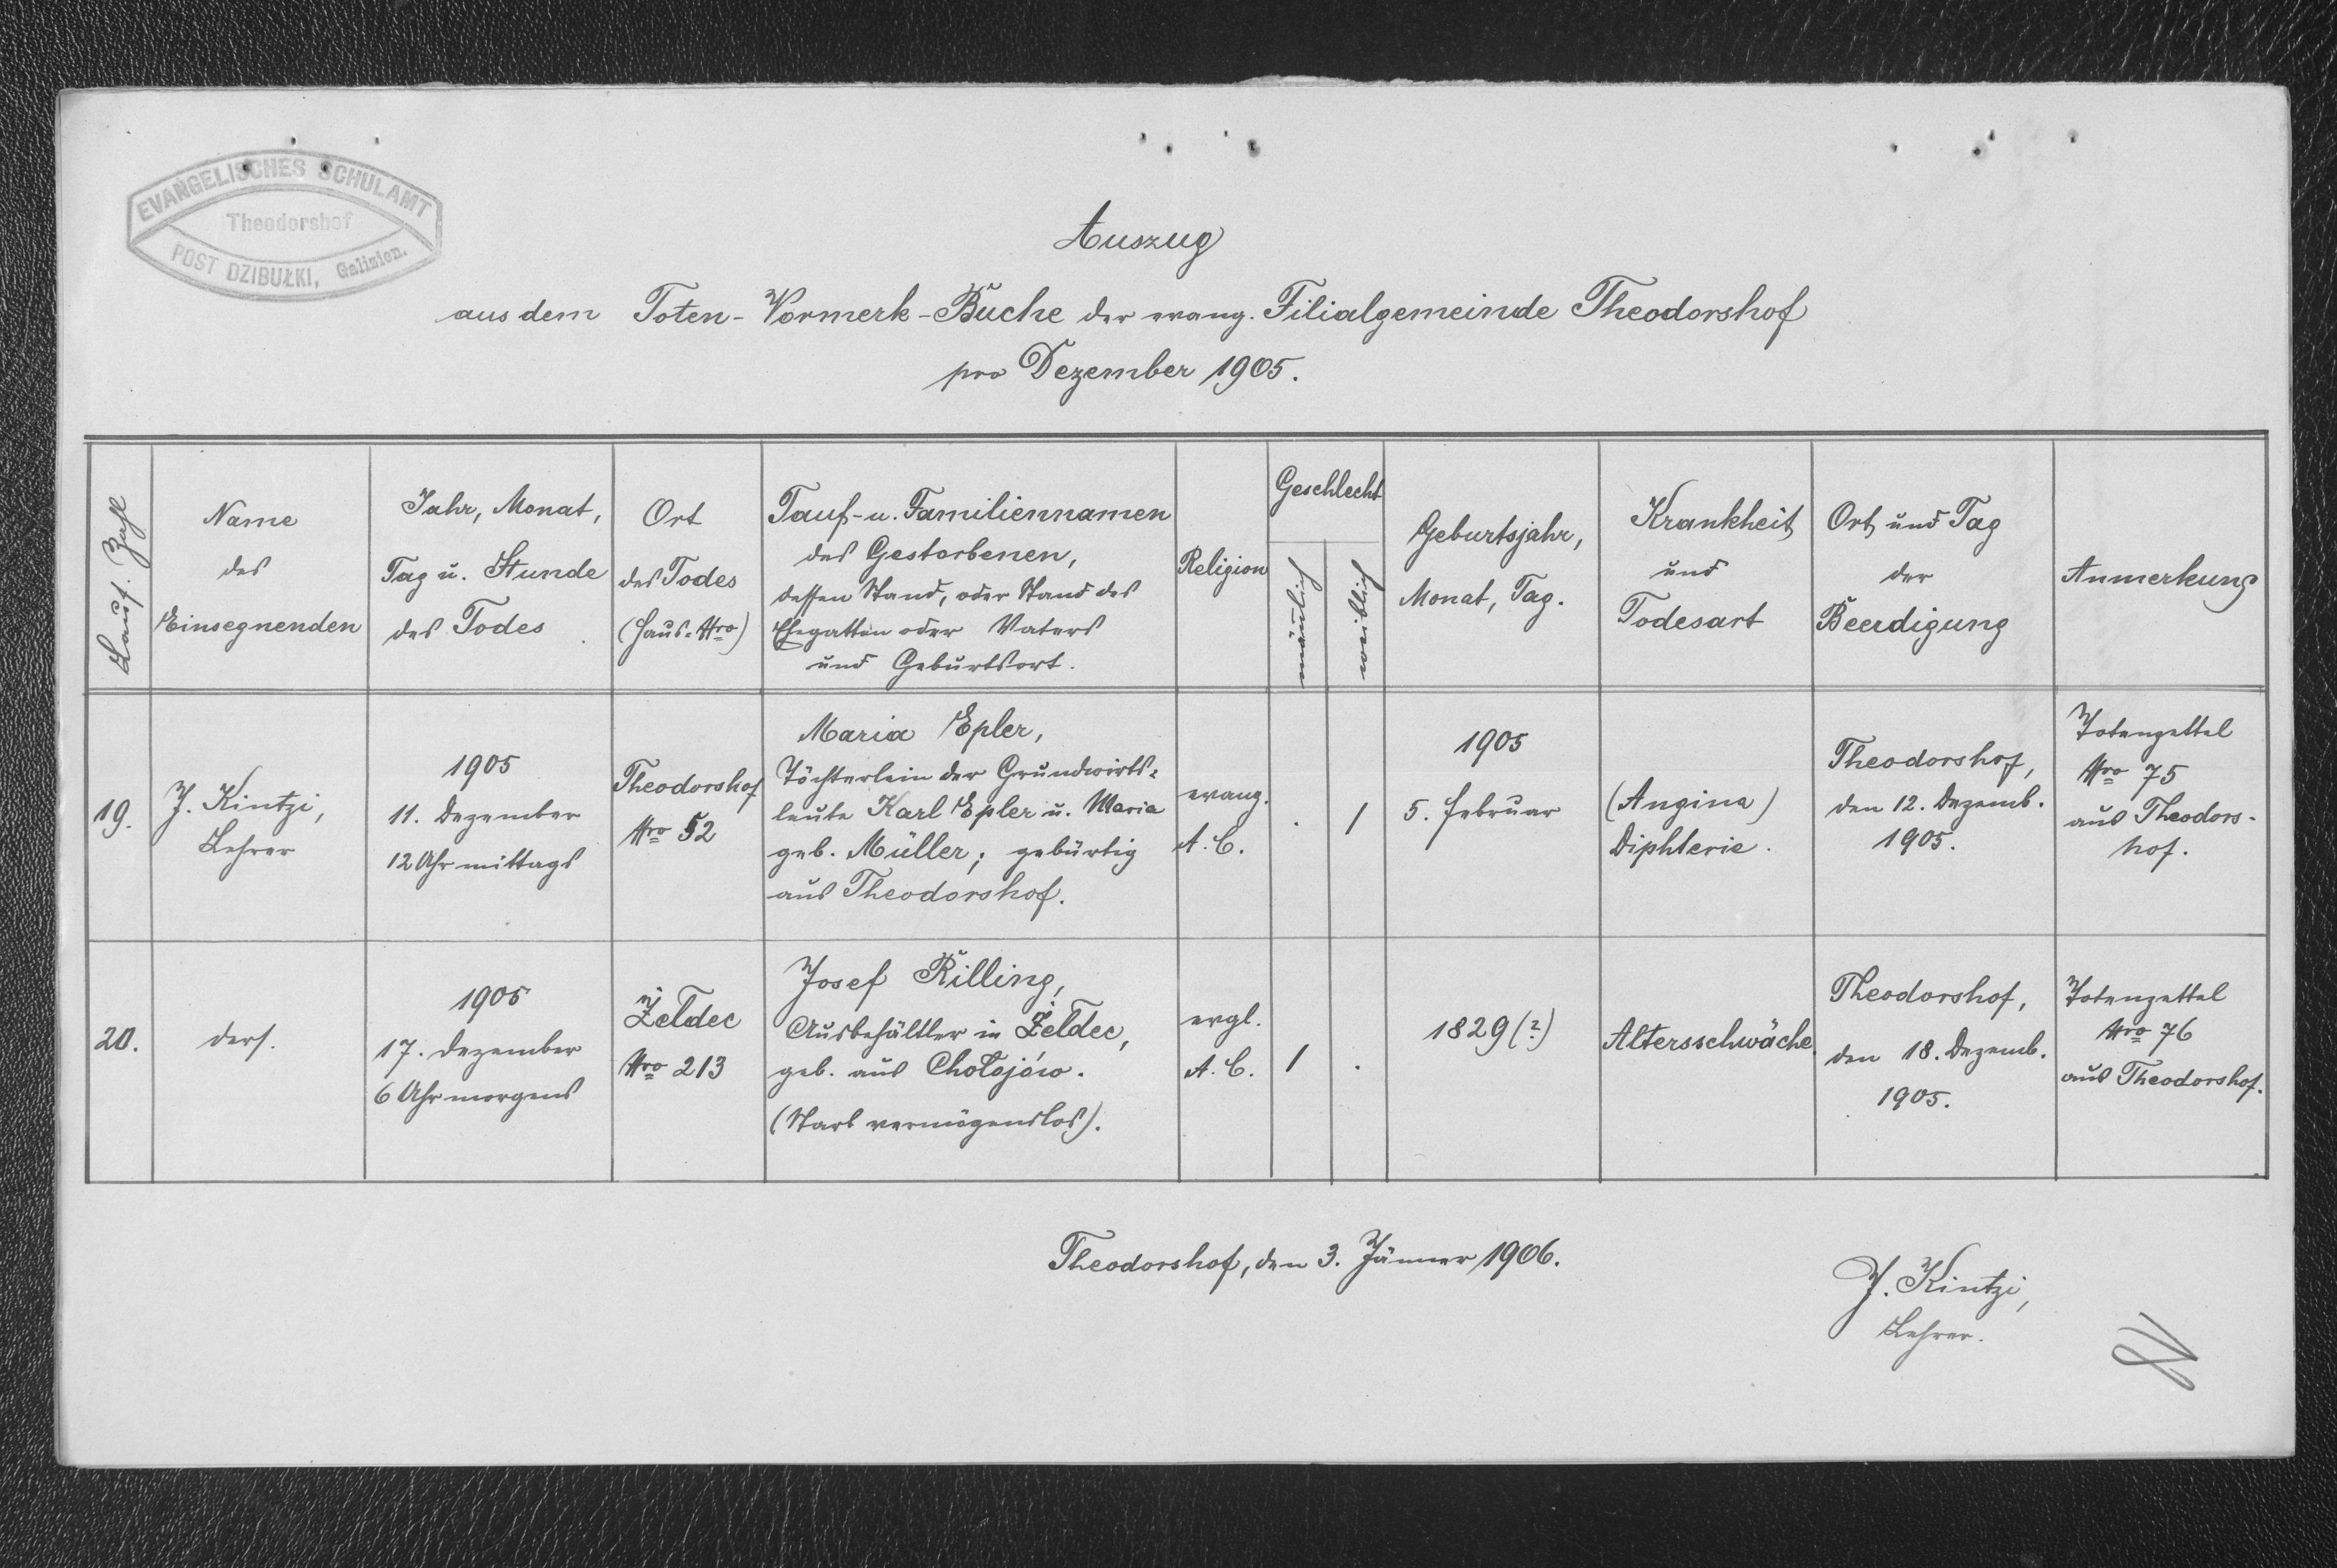 EVANGELISCHES SCHULAMT
Theodorshof
POST DZIBUŁKI, Galizien.
Auszug
aus dem Toten-Vormerk-Buche der evang. Filialgemeinde Theodorshof
pro Dezember 1905.
Lauf. Zahl
Name
des
Einsegnenden
Jahr, Monat,
Tag u. Stunde
des Todes
Ort
des Todes
(Haus-Nro)
Tauf- u. Familiennamen
des Gestorbenen,
dessen Stand, oder Stand des
Ehegatten oder Vaters
und Geburtsort.
Religion
Geschlecht
männlich
weiblich
Geburtsjahr,
Monat, Tag.
Krankheit
und
Todesart
Ort und Tag
der
Beerdigung
Anmerkung
19.
J. Kintzi,
Lehrer
1905
11. Dezember
12 Uhr mittags
Theodorshof
Nro 52
Maria Epler,
Töchterlein der Grundwirts-
leute Karl Epler u. Maria
geb. Müller; gebürtig
aus Theodorshof.
evang.
A. C.
.
1
1905
5. Februar
(Angina)
Diphterie.
Theodorshof,
den 12. Dezemb.
1905.
Totenzettel
Nro 75
aus Theodors-
hof.
20.
ders.
1905
17. Dezember
6 Uhr morgens
Żełdec
Nro 213
Josef Rilling,
Ausbehältler in Żełdec,
geb. aus Chołojów.
(Starb vermögenslos).
evgl.
A. C.
1
.
1829 (?)
Altersschwäche.
Theodorshof,
den 18. Dezemb.
1905.
Totenzettel
Nro 76
aus Theodorshof.
Theodorshof, den 3. Jänner 1906.
J. Kintzi,
Lehrer.